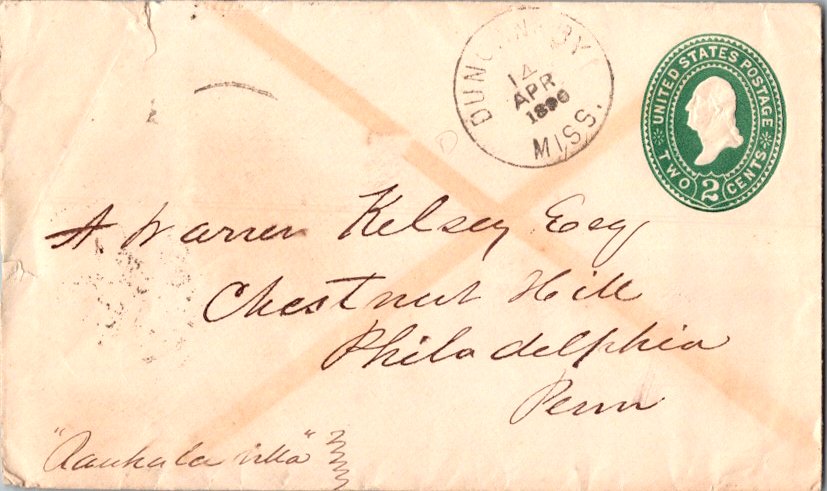 MISS.
14
APR
1890
UNITED STATES POSTAGE
TWO 2 CENTS
A Warren Kelsey Esq
Chestnut Hill
Philadelphia
Penn